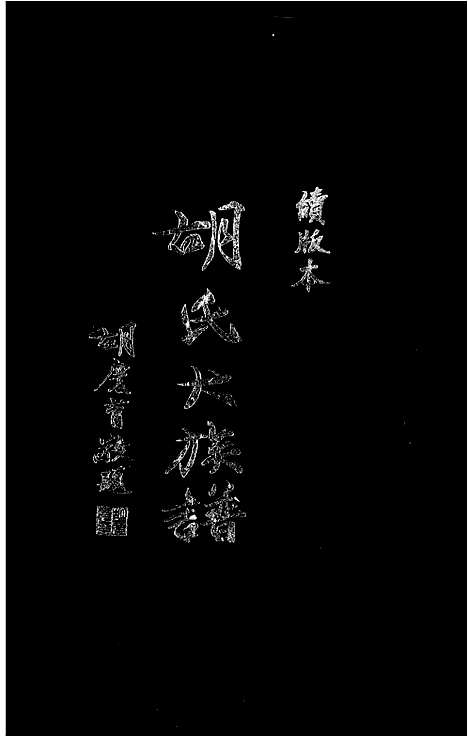 續版本
胡氏大族譜
胡慶育敬題